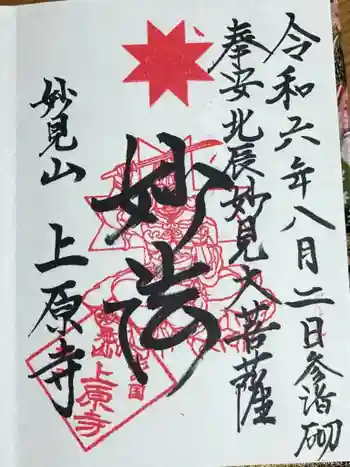 令和六年八月二日参詣砌
奉安北辰妙見大菩薩
妙法
妙見山
上原寺
上原寺